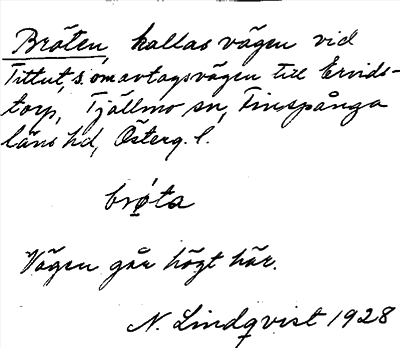 Bråten, kallas vägen vid
Tittut, s. om avtagsvägen till Ervids-
torp, Tjällmo sn, Finspånga
läns hd, Österg. l.
brǿta
Vägen går högt här.
N. Lindqvist 1928